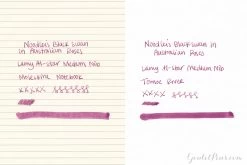 Noodler's Black Swan
in Australian Roses
Lamy Al-Star Medium Nib
Moleskine Notebook
xxxxx
Noodler's Black Swan
in Australian Roses
Lamy Al-Star Medium Nib
Tomoe River
xxxxx